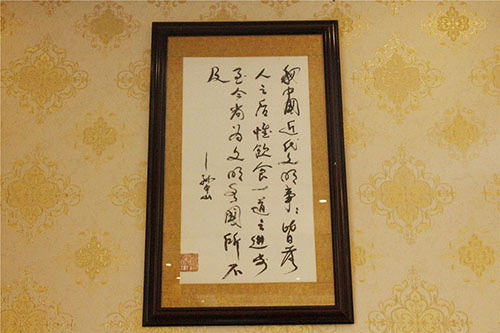 我中國近代文明事〻皆落
人之后惟飲食一道之進步
至今尚为文明各國所不
及
—孙中山